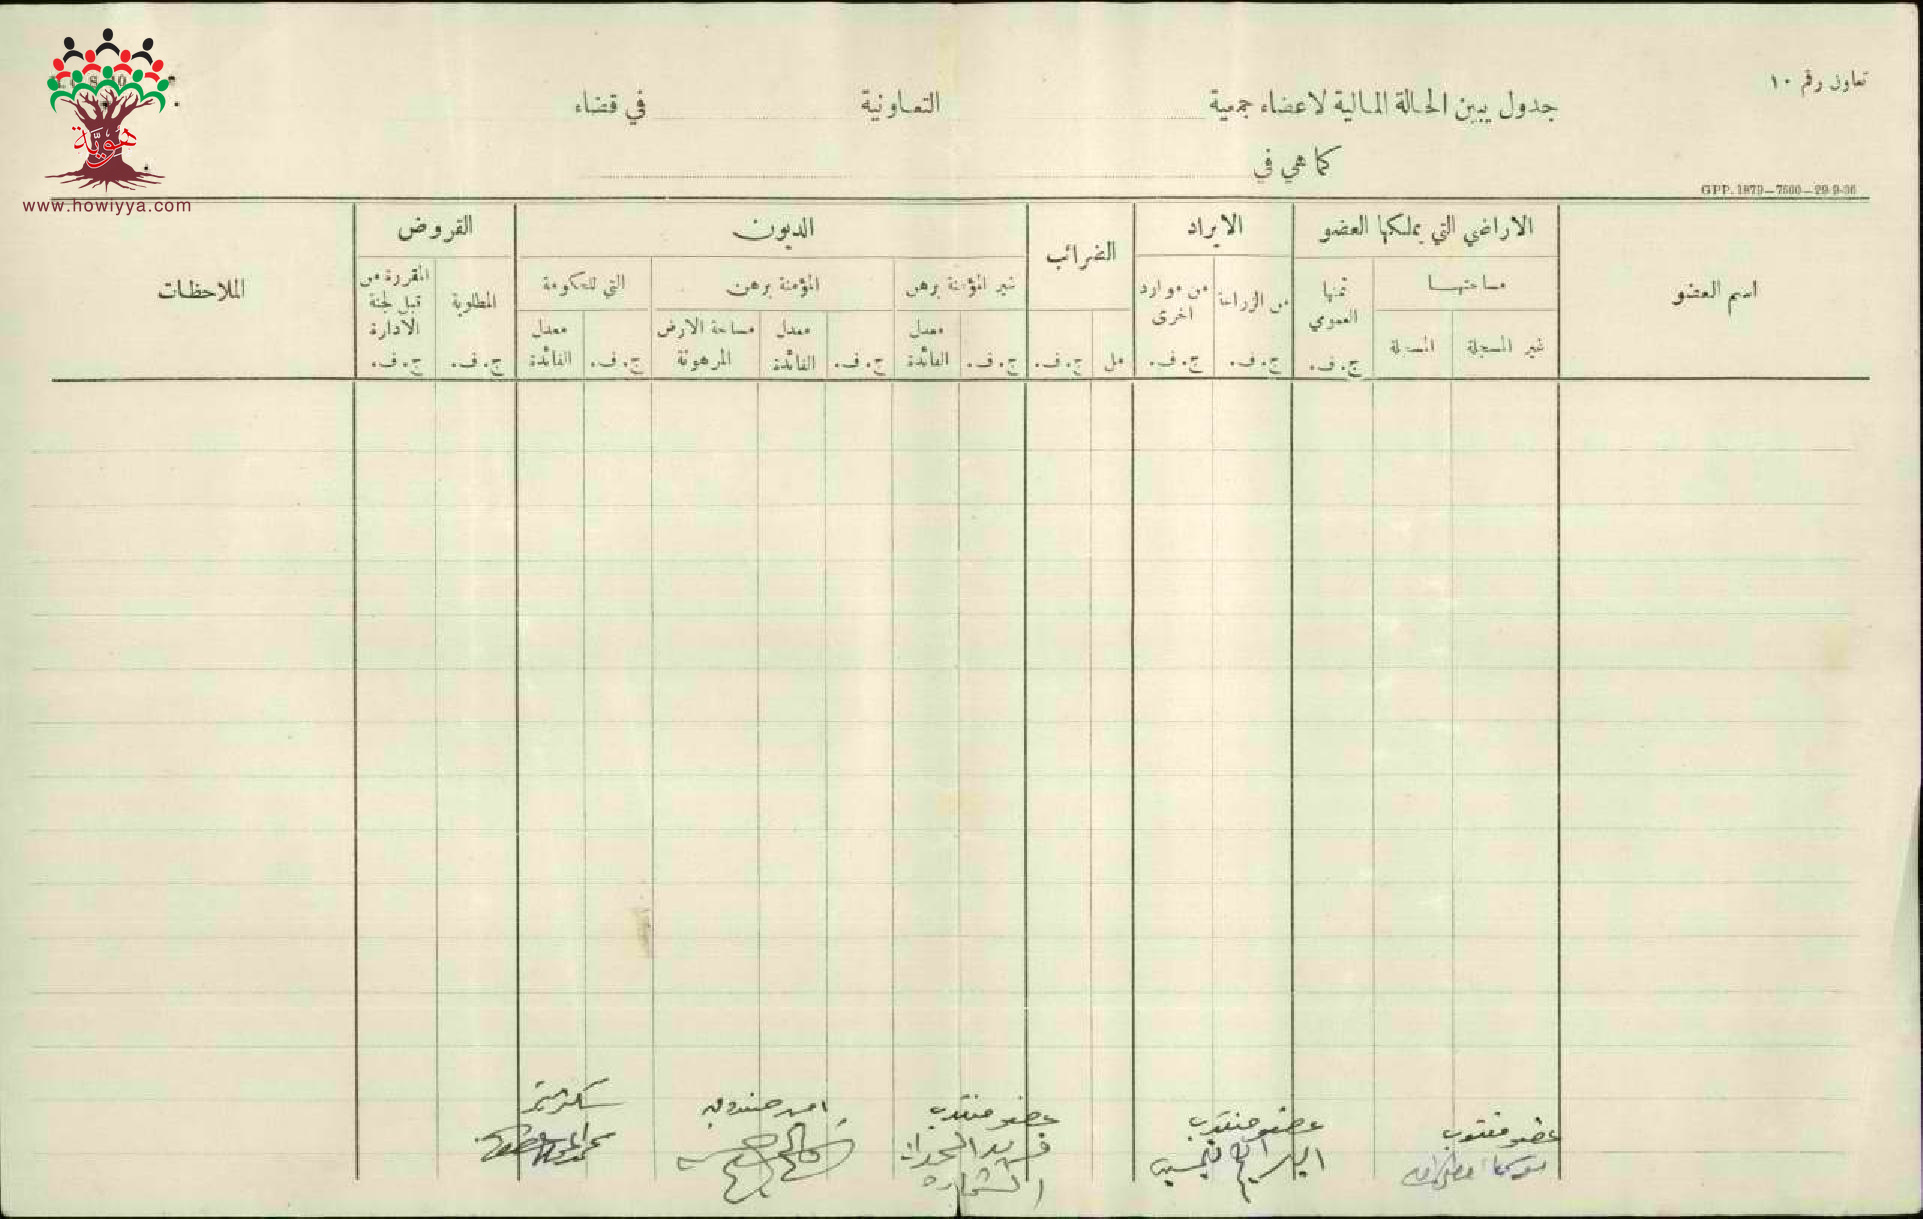 تعاون رقم ١٠
جدول يبين الحالة المالية لاعضاء جمعية التعاونية في قضاء
كما هي في
GPP. 1879—7500—29-9-36
هوية
www.howiyya.com
اسم العضو
الاراضي التي يملكها العضو
مساحتهـا
غير المسجلة
المسجلة
ثمنها العمومي
ج. ف.
الايراد
من الزراعة
ج. ف.
من موارد اخرى
ج. ف.
الضرائب
مل
ج. ف.
الديون
غير المؤمنة برهن
ج. ف.
معدل الفائدة
المؤمنة برهن
ج. ف.
معدل الفائدة
مساحة الارض المرهونة
التي للحكومة
ج. ف.
معدل الفائدة
القروض
المطلوبة
ج. ف.
المقررة من قبل لجنة الادارة
ج. ف.
الملاحظات
عضو منتدب
عضو منتدب
عضو منتدب
امين صندوق
سكرتير